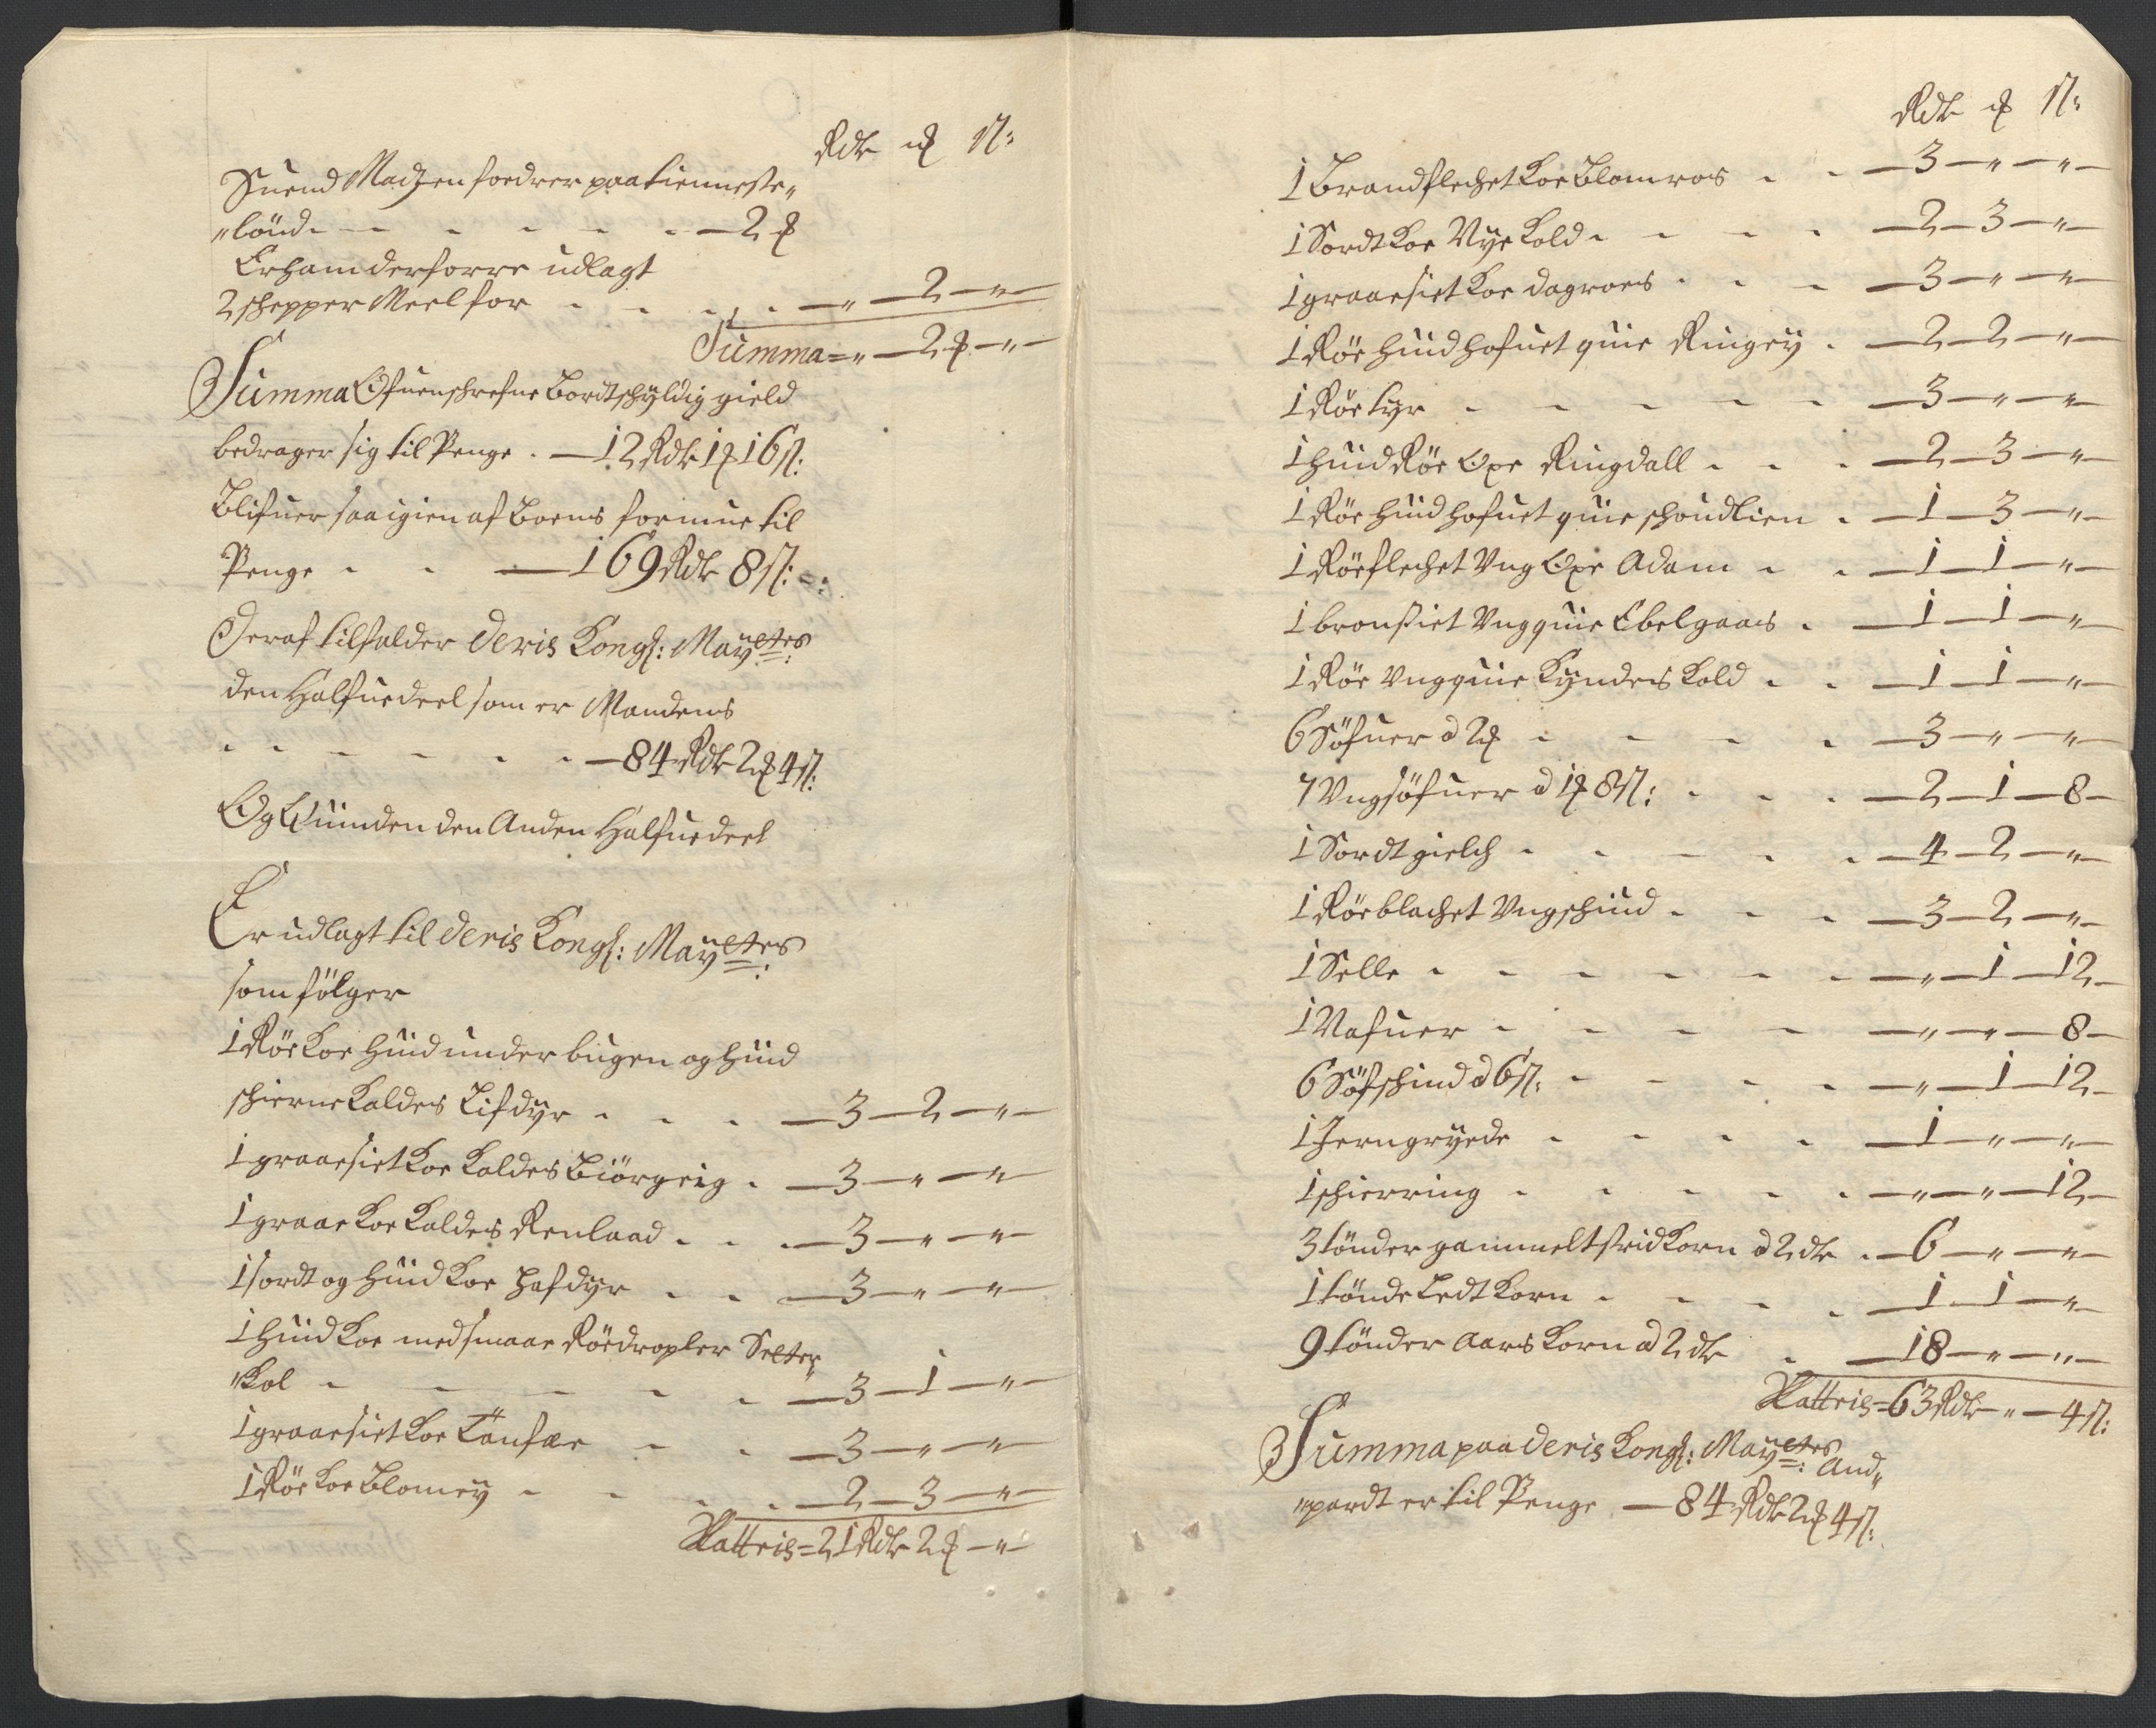 Rdr ɱ ß:
Suend Madzen fordrer paa tienneste„
„lönd - - - - - - 2 ɱ
Er ham derforre udlagt
2 schepper Meel for - - - - „ — 2 — „
Summa = „ — 2 ɱ — „
Summa Ofuenschrefne bordtschyldig gield
bedrager sig til Penge . — 12 Rdr 1 ɱ 16 ß:
Blifuer saa igien af boens formue til
Penge - - — 169 Rdr 8 ß: -:
Deraf tilfalder Deris Kongl: Mayttes
den Halfuedeel som er Mandens
- - - - - - — 84 Rdr 2 ɱ 4 ß:
Og Quinden den Anden Halfuedeel
Er udlagt til Deris Kongl: Mayttes
som fölger
1 Röe Koe huid under bugen og huid
schierne Kaldes Lifdyr - - - — 3 — 2 — „
1 graaesiet Koe Kaldes Biörgeig . — 3 — „ — „
1 graae Koe Kaldes Renlaad - - - — 3 — „ — „
1 sordt og huid Koe Hafdyr - - — 3 — „ — „
1 huid Koe med smaae Röe dropler Selter„
„Kol - - - - - — 3 — 1 — „
1 graaesiet Koe - - — 3 — „ — „
1 Röe Koe Blomey - - - - — 2 — 3 — „
Latteris = 21 Rdr 2 ɱ — „
Rdr ɱ ß:
1 Brandflechet Koe Blomros - - — 3 — „ — „
1 Sordt Koe Nye Kold - - - - — 2 — 3 — „
1 graaesiet Koe dagroes - - - — 3 — „ — „
1 Röe huidhofuet quie Ringey . — 2 — 2 — „
1 Röe tyr - - - - - — 3 — „ — „
1 huid Röe Oxe Ringdall - - - — 2 — 3 — „
1 Röe huidhofuet quie schoudlien . — 1 — 3 — „
1 Röeflechet Ung Oxe Adam - - — 1 — 1 — „
1 bronsiet Ungquie Ebelgaas . — 1 — 1 — „
1 Röe Ungquie Kyndes Kold - - — 1 — 1 — „
6 Söfuer à 2 ɱ - - - - — 3 — „ — „
7 Ungsöfuer à 1 ɱ 8 ß: - - - — 2 — 1 — 8 —
1 Sordt gielch - - - - - — 4 — 2 — „
1 Röeblachet Ungschiud - - - — 3 — 2 — „
1 Selle - - - - - - — „ — 1 — 12 —
1 Nafuer - - - - — „ — „ — 8 —
6 Söfschind à 6 ß: - - - - — „ — 1 — 12 —
1 Jerngryede - - - - — 1 — „ — „
1 schierring - - - - - — „ — „ — 12 —
3 tönder gammelt stridkorn à 2 dr . — 6 — „ — „
1 tönde Ledt Korn - - - - — 1 — 1 — „
9 tönder aars Korn à 2 dr - — 18 — „ — „
Latteris = 63 Rdr — „ — 4 ß:
Summa paa Deris Kongl: Mayttes And„
„pardt er til Penge — 84 Rdr 2 ɱ 4 ß: